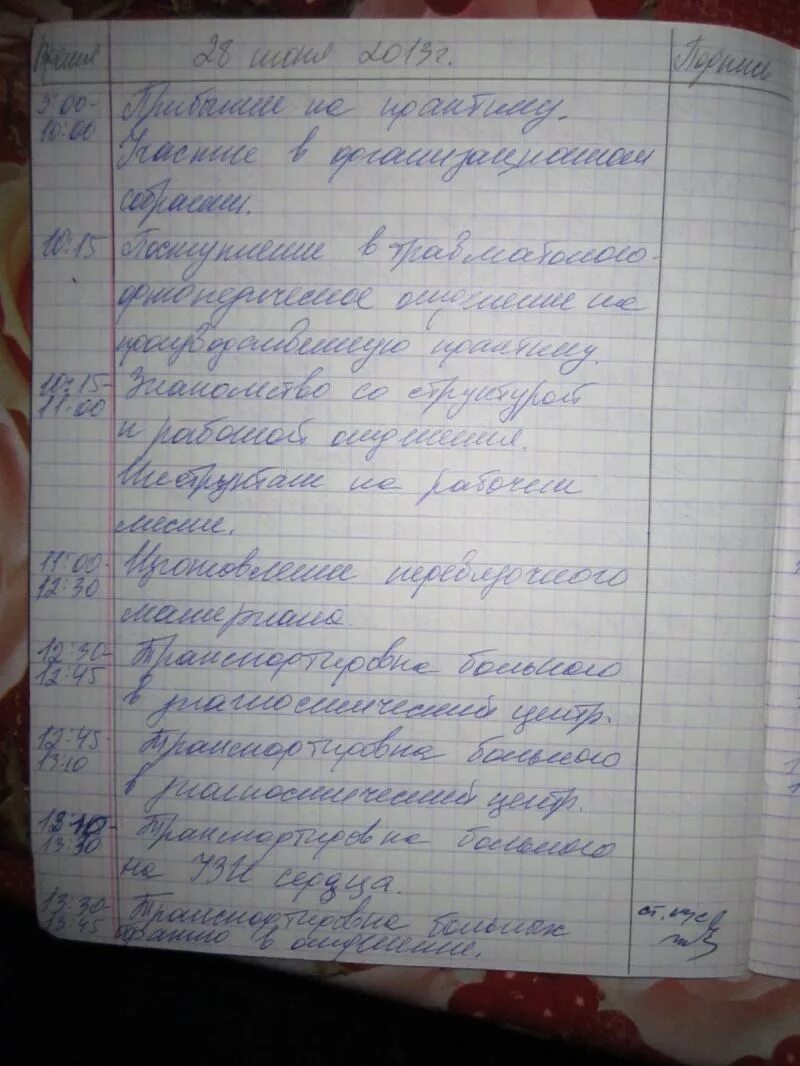 Время 28 июня 2013г. Подпись
9:00- Прибытие на практику.
10:00 Участие в организационном
собрании.
10:15 Поступление в травматолого-
ортопедическое отделение на
производственную практику.
10:15- Знакомство со структурой
11:00 и работой отделения.
Инструктаж на рабочем
месте.
11:00- Изготовление перевязочного
12:30 материала.
12:30- Транспортировка больного
12:45 в диагностический центр.
12:45- Транспортировка больного
13:10 в диагностический центр.
13:10- Транспортировка больного
13:30 на УЗИ сердца.
13:30- Транспортировка больных
13:45 обратно в отделение.
ст.